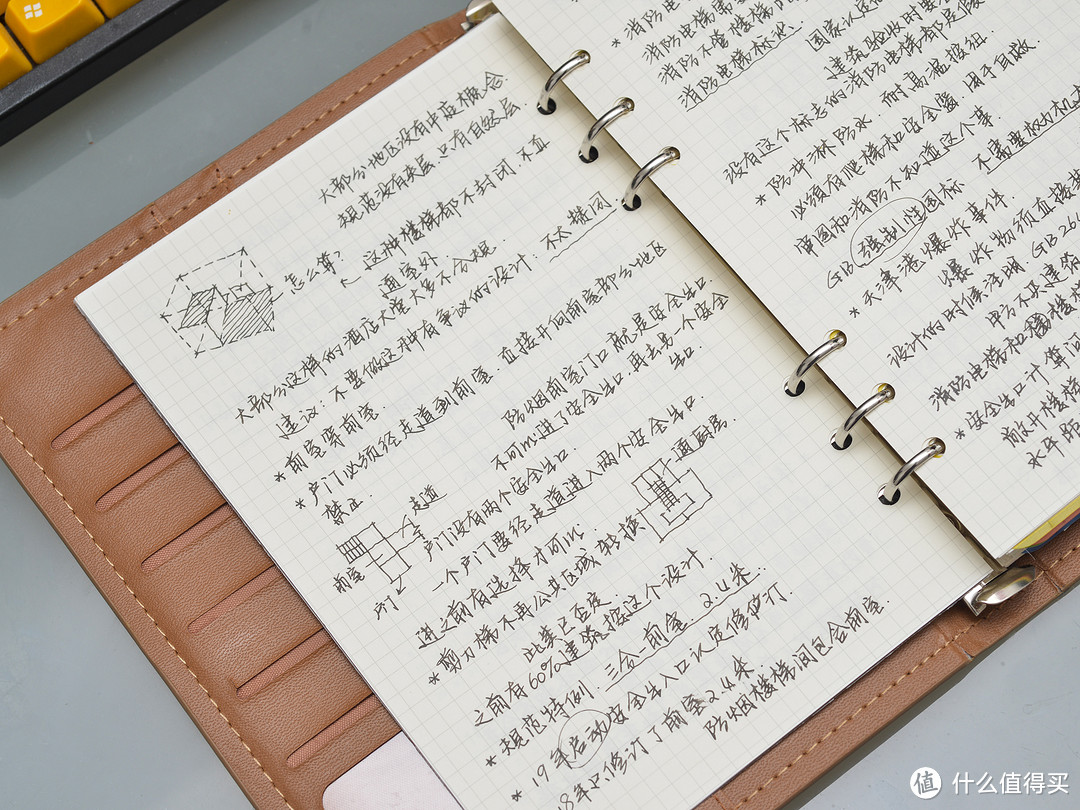 大部分地区没有中庭概念
规范没有夹层,只有自然层
怎么算?
这种楼梯都不封闭,不直
通室外
大部分这样的酒店大堂大多不合规.
建议:不要做这种有争议的设计:不以楼间.
*前室穿前室.
*户门必须经走道到前室.直接开向前室部分地区
禁止.
防烟前室门口就是安全出口
不可以进了安全出口,再去另一个安全
出口.
走道
前室
户门
户门没有两个安全出口.
一个户门要经走道进入两个安全出口.
进之前有选择才可以
通厨房
*剪刀梯不再公共区域转换
此类已否定
之前有60%建筑按这个设计
*规范特例.三合一前室.2.4米.
*19年启动安全出入口认定修订
18年只修订了前室2.4米
防烟楼梯间包含前室
*消防电
消防电梯需
消防不管楼梯
消防电梯标志
国家认
建筑验收时要
没有这个标志的消防电梯都
*防冲淋防水.耐高温按组
必须有爬梯和安全窗,用于自救
审图和消防不知道这个事.
GB 强制性国标
不需要
*天津港爆炸事件
爆炸物须直接
设计的时候注明 GB26
甲方不买建筑
消防电梯和楼梯
*安全出口计算
敞开楼梯
水平
值 什么值得买